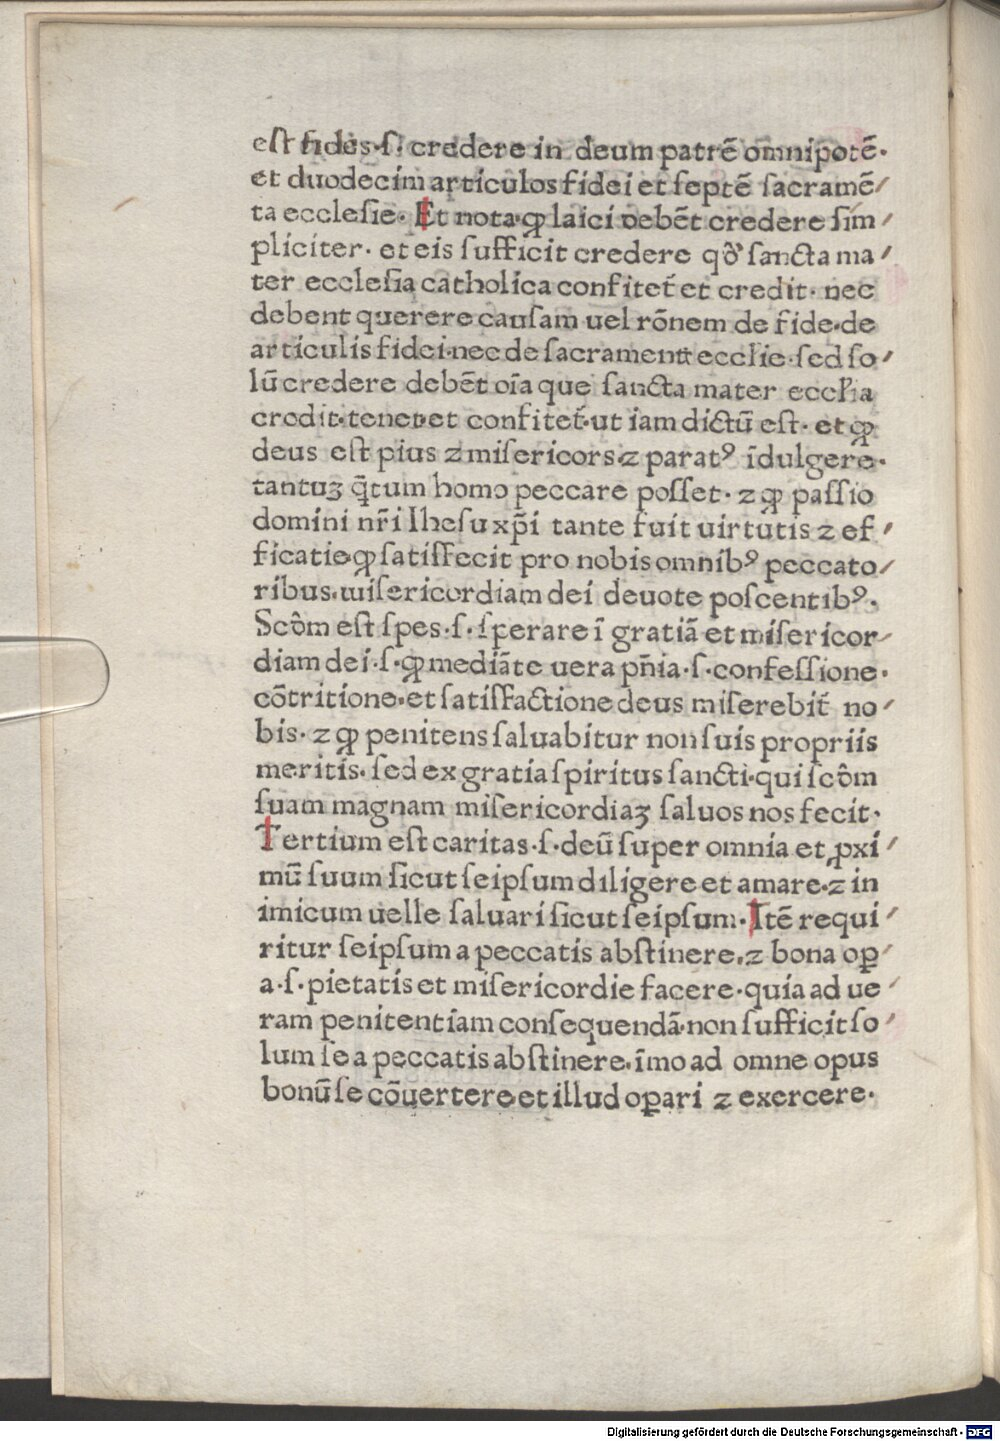 eſt fides·ſ· credere in deum patrē om̄nipotē·
et duodecim articulos fidei et ſeptē ſacramē/
ta eccleſie· Et nota·ꝙ laici debēt credere ſim/
pliciter· et eis ſufficit credere qđ ſancta ma/
ter eccleſia catholica confitet̄ et credit· nec
debent querere cauſam uel rōnem de fide·de
articulis fidei·nec de ſacramentꝭ ecclīe·ſed ſo/
lū credere debēt oīa que ſancta mater eccłia
credit·tenet·et confitet̄·ut iam dictū eſt· et ꝙ
deus eſt pius ⁊ miſericors·⁊ paratꝰ īdulgere·
tantuꝫ q̄tum homo peccare poſſet· ⁊ ꝙ paſſio
domini nr̄i Iheſu xp̄i tante fuit uirtutis ⁊ ef/
ficatie·ꝙ ſatiſfecit pro nobis omnibꝰ peccato/
ribus·miſericordiam dei deuote poſcentibꝰ·
Scōm eſt ſpes·ſ· ſperare ī gratiā et miſericor/
diam dei·ſ·ꝙ mediāte uera pn̄ia·ſ·confeſſione·
cōtritione·et ſatiſfactione deus miſerebit̄ no/
bis· ⁊ ꝙ penitens ſaluabitur non ſuis propriis
meritis· ſed ex gratia ſpiritus ſancti·qui ſcōm
ſuam magnam miſericordiaꝫ ſaluos nos fecit·
Tertium eſt caritas·ſ·deū ſuper omnia et ꝓxi/
mū ſuum ſicut ſeipſum diligere et amare·⁊ in
imicum uelle ſaluari ſicut ſeipſum· Itē requi/
ritur ſeipſum a peccatis abſtinere·⁊ bona oꝑ/
a·ſ·pietatis et miſericordie facere·quia ad ue/
ram penitentiam conſequendā·non ſufficit ſo/
lum ſe a peccatis abſtinere·īmo ad omne opus
bonū ſe cōuertere·et illud oꝑari ⁊ exercere·
Digitalisierung gefördert durch die Deutsche Forschungsgemeinschaft - DFG